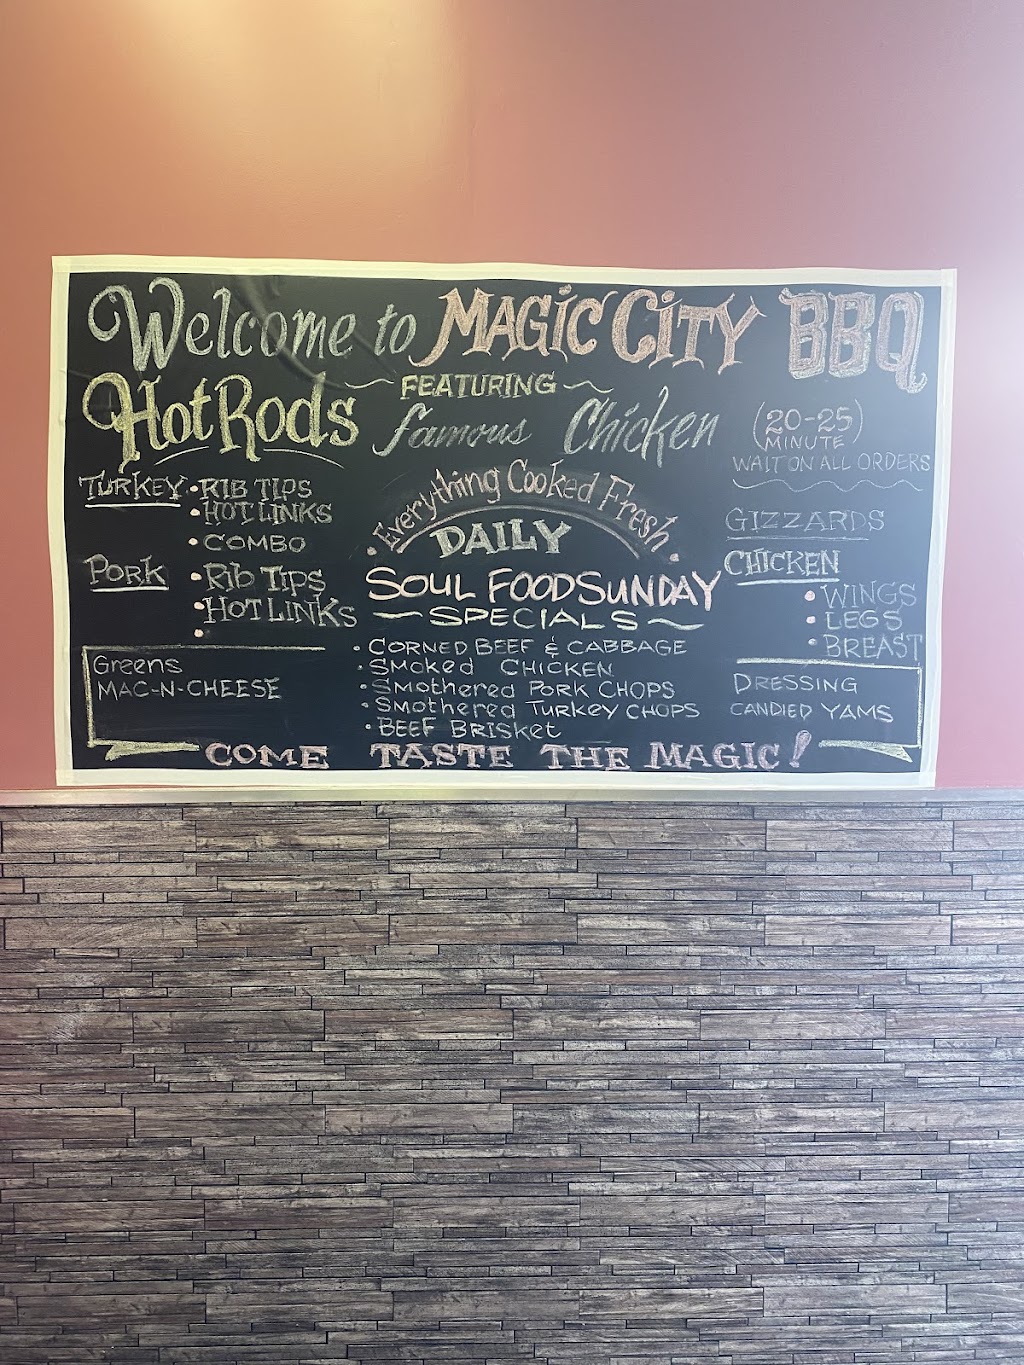 Welcome to MAGIC CITY BBQ
~ FEATURING ~
HotRods famous Chicken
(20-25)
MINUTE
WAIT ON ALL ORDERS
TURKEY • RIB TIPS
• HOT LINKS
• COMBO
PORK • Rib TIPS
• HOT LINKS
•
Greens
MAC-N-CHEESE
• Everything Cooked Fresh •
DAILY
SOUL FOOD SUNDAY
~ SPECIALS ~
• CORNED BEEF & CABBAGE
• SMOKED CHICKEN
• SMOTHERED PORK CHOPS
• SMOTHERED TURKEY CHOPS
• BEEF BRISKET
GIZZARDS
CHICKEN
• WINGS
• LEGS
• BREAST
DRESSING
CANDIED YAMS
COME TASTE THE MAGIC!